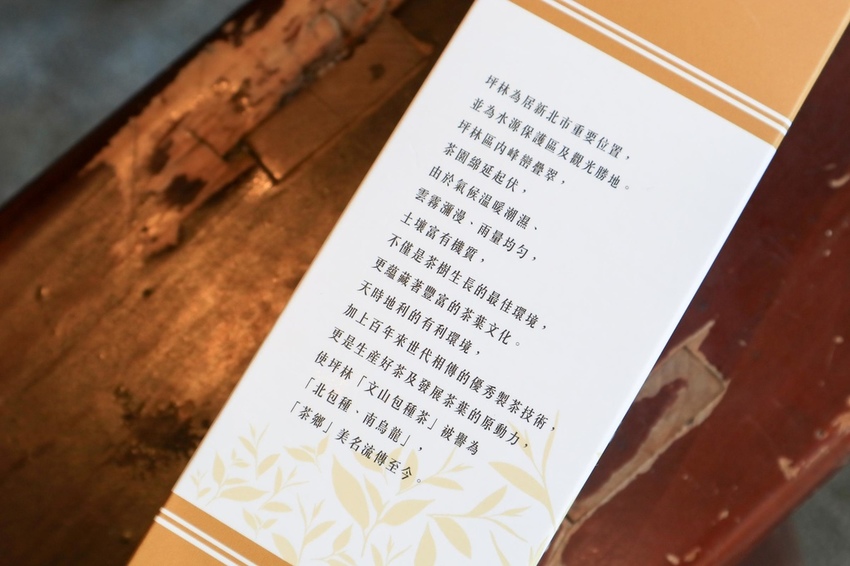 坪林為居新北市重要位置，
並為水源保護區及觀光勝地。
坪林區內峰巒疊翠，
茶園綿延起伏，
由於氣候溫暖潮濕、
雲霧瀰漫、雨量均勻，
土壤富有機質，
不僅是茶樹生長的最佳環境，
更蘊藏著豐富的茶葉文化。
天時地利的有利環境，
加上百年來世代相傳的優秀製茶技術，
更是生産好茶及發展茶葉的原動力，
使坪林「文山包種茶」被譽為
「北包種、南烏龍」，
「茶鄉」美名流傳至今。